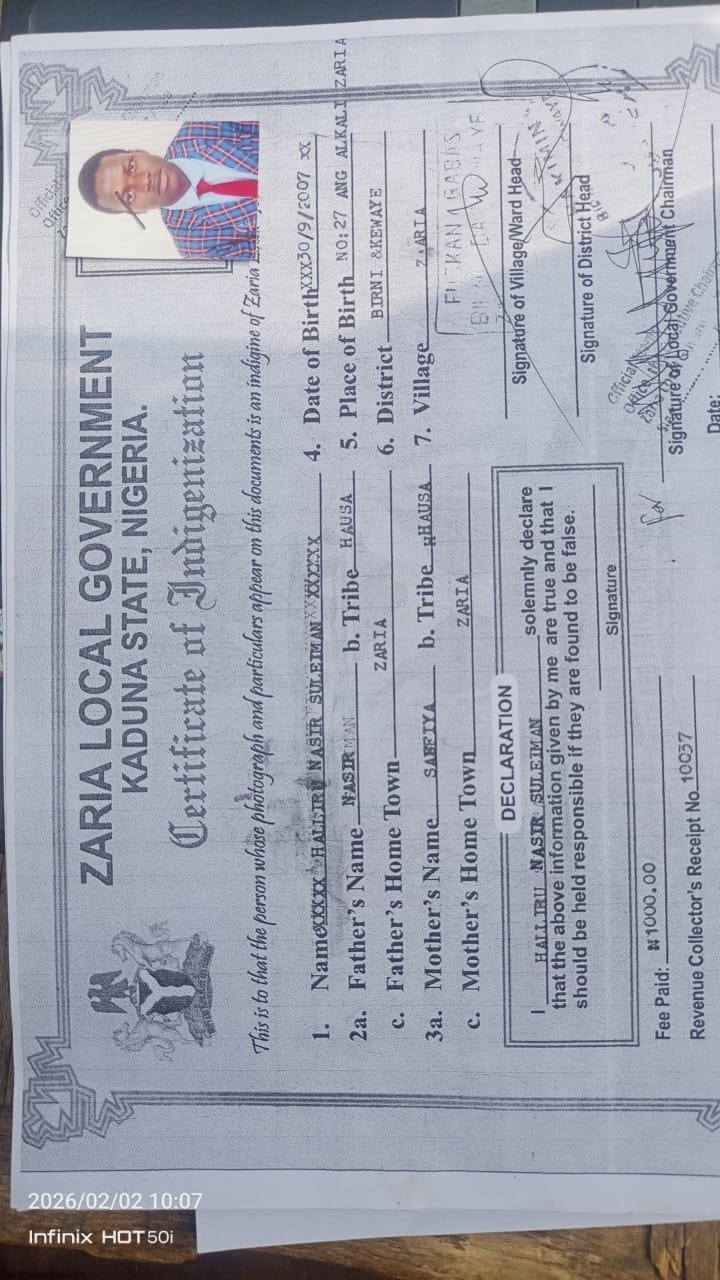 ZARIA LOCAL GOVERNMENT
KADUNA STATE, NIGERIA.
Certificate of Indigenization
This is to that the person whose photograph and particulars appear on this documents is an indigine of Zaria
1. Name XXXXX HALLIRU NASIR SULEIMAN XXXXXXX
2a. Father's Name NASIR b. Tribe HAUSA
c. Father's Home Town ZARIA
3a. Mother's Name b. Tribe HAUSA
c. Mother's Home Town ZARIA
4. Date of Birth XXX30/9/2007 XX
5. Place of Birth NO:27 ANG ALKALI ZARIA
6. District BIRNI &KEWAYE
7. Village ZARIA
DECLARATION
I HALLIRU NASIR SULEIMAN solemnly declare
that the above information given by me are true and that I
should be held responsible if they are found to be false.
Signature
Signature of Village/Ward Head
Signature of District Head
for
Signature of Local Government Chairman
Date:
Fee Paid: ₦1000.00
Revenue Collector's Receipt No. 10037
2026/02/02 10:07
Infinix HOT 50i